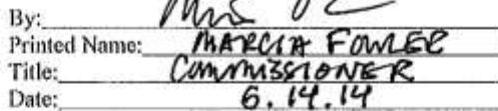 By:
Printed Name: MARCIA FOWLER
Title: COMMISSIONER
Date: 6.14.14